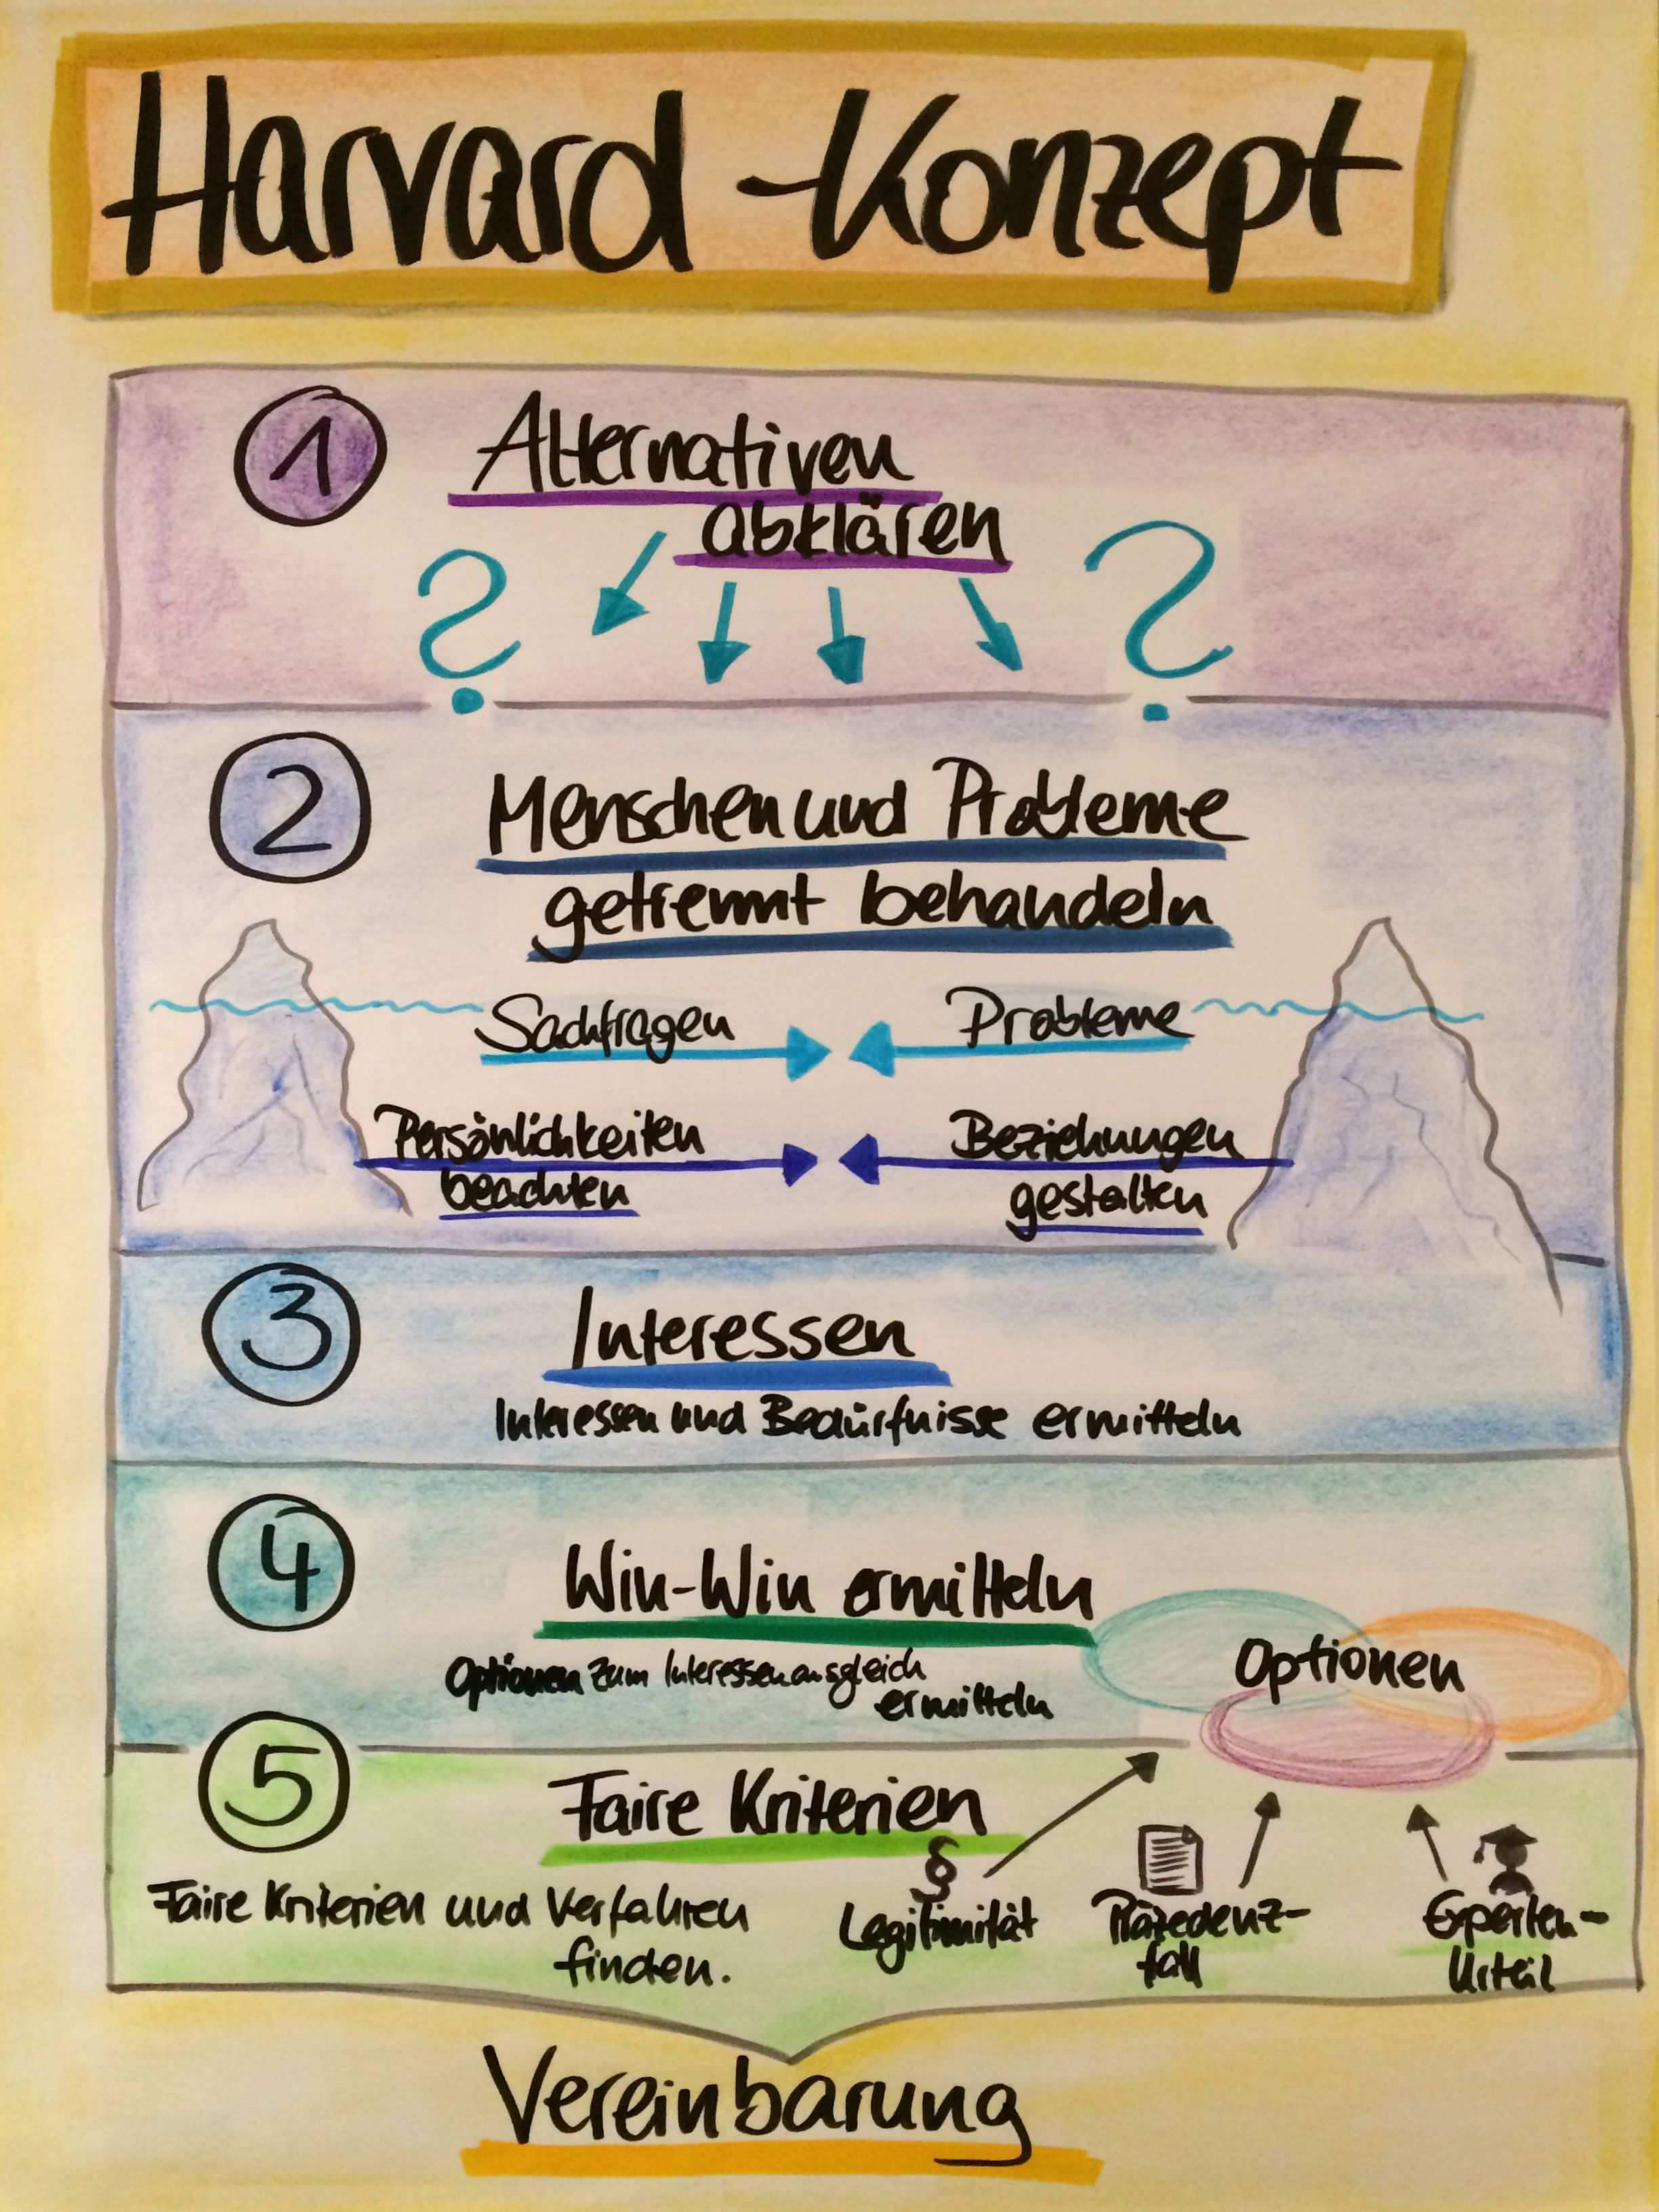 Harvard-Konzept
1 Alternativen
abklären
? ?
2 Menschen und Probleme
getrennt behandeln
Sachfragen Probleme
Persönlichkeiten Beziehungen
beachten gestalten
3 Interessen
Interessen und Bedürfnisse ermitteln
4 Win-Win ermitteln
Optionen zum Interessenausgleich
ermitteln
Optionen
5 Faire Kriterien
Faire Kriterien und Verfahren
finden.
§
Legitimität
Präzedenz-
fall
Experten-
Urteil
Vereinbarung